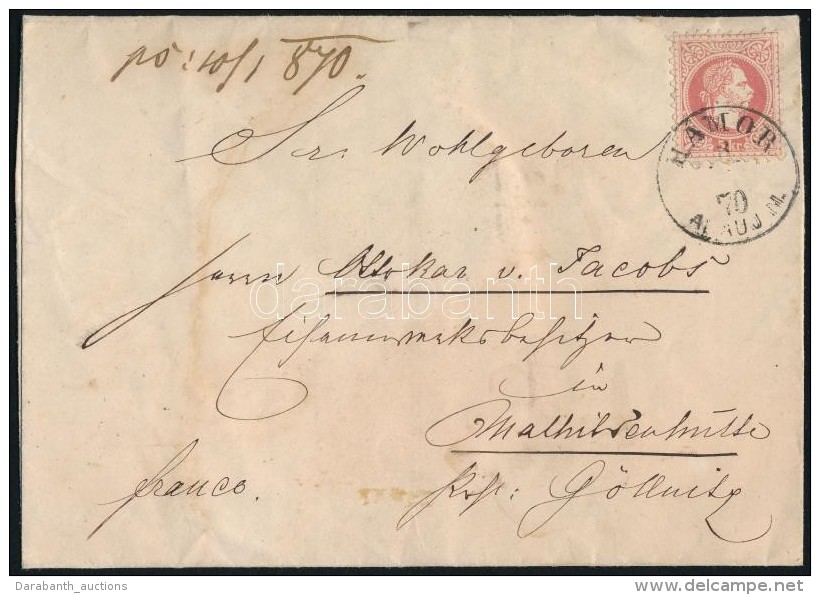 ps: 10/1 870.
Sr. Wohlgeboren
HÁMOR
70
ABAUJ M.
Herrn Ottokar v. Jacobs
darabanth
Eisenwerksbesitzer
in
Mathildenhütte
franco.
Göllnitz
Darabanth_auctions
©delcampe.net